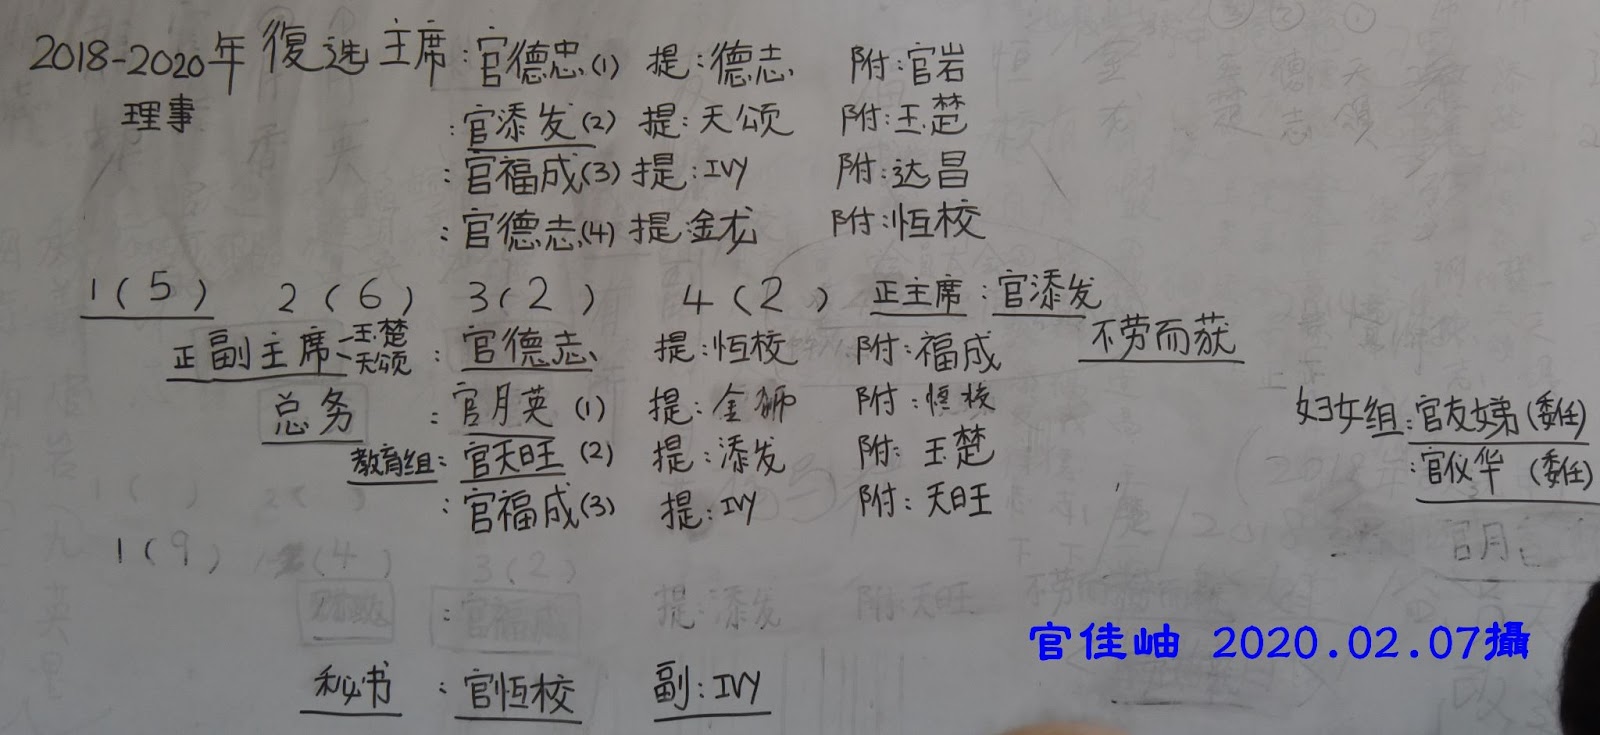 2018-2020年復选主席:官德忠(1) 提:德志 附:官岩
理事
:官添发(2) 提:天颂 附:玉楚
:官福成(3) 提:IVY 附:达昌
:官德志(4) 提:金龙 附:恆校
1(5) 2(6) 3(2) 4(2) 正主席:官添发
不劳而获
正副主席-玉楚-天颂:官德志 提:恆校 附:福成
总务:官月英(1) 提:金狮 附:恒校
妇女组:官友娣(委任)
教育组:官天旺(2) 提:添发 附:玉楚
:官仪华(委任)
:官福成(3) 提:IVY 附:天旺
官月
1(9) (4) 3(2)
:官福成 提:添发 附:天旺
官佳岫 2020.02.07攝
秘书:官恆校 副:IVY